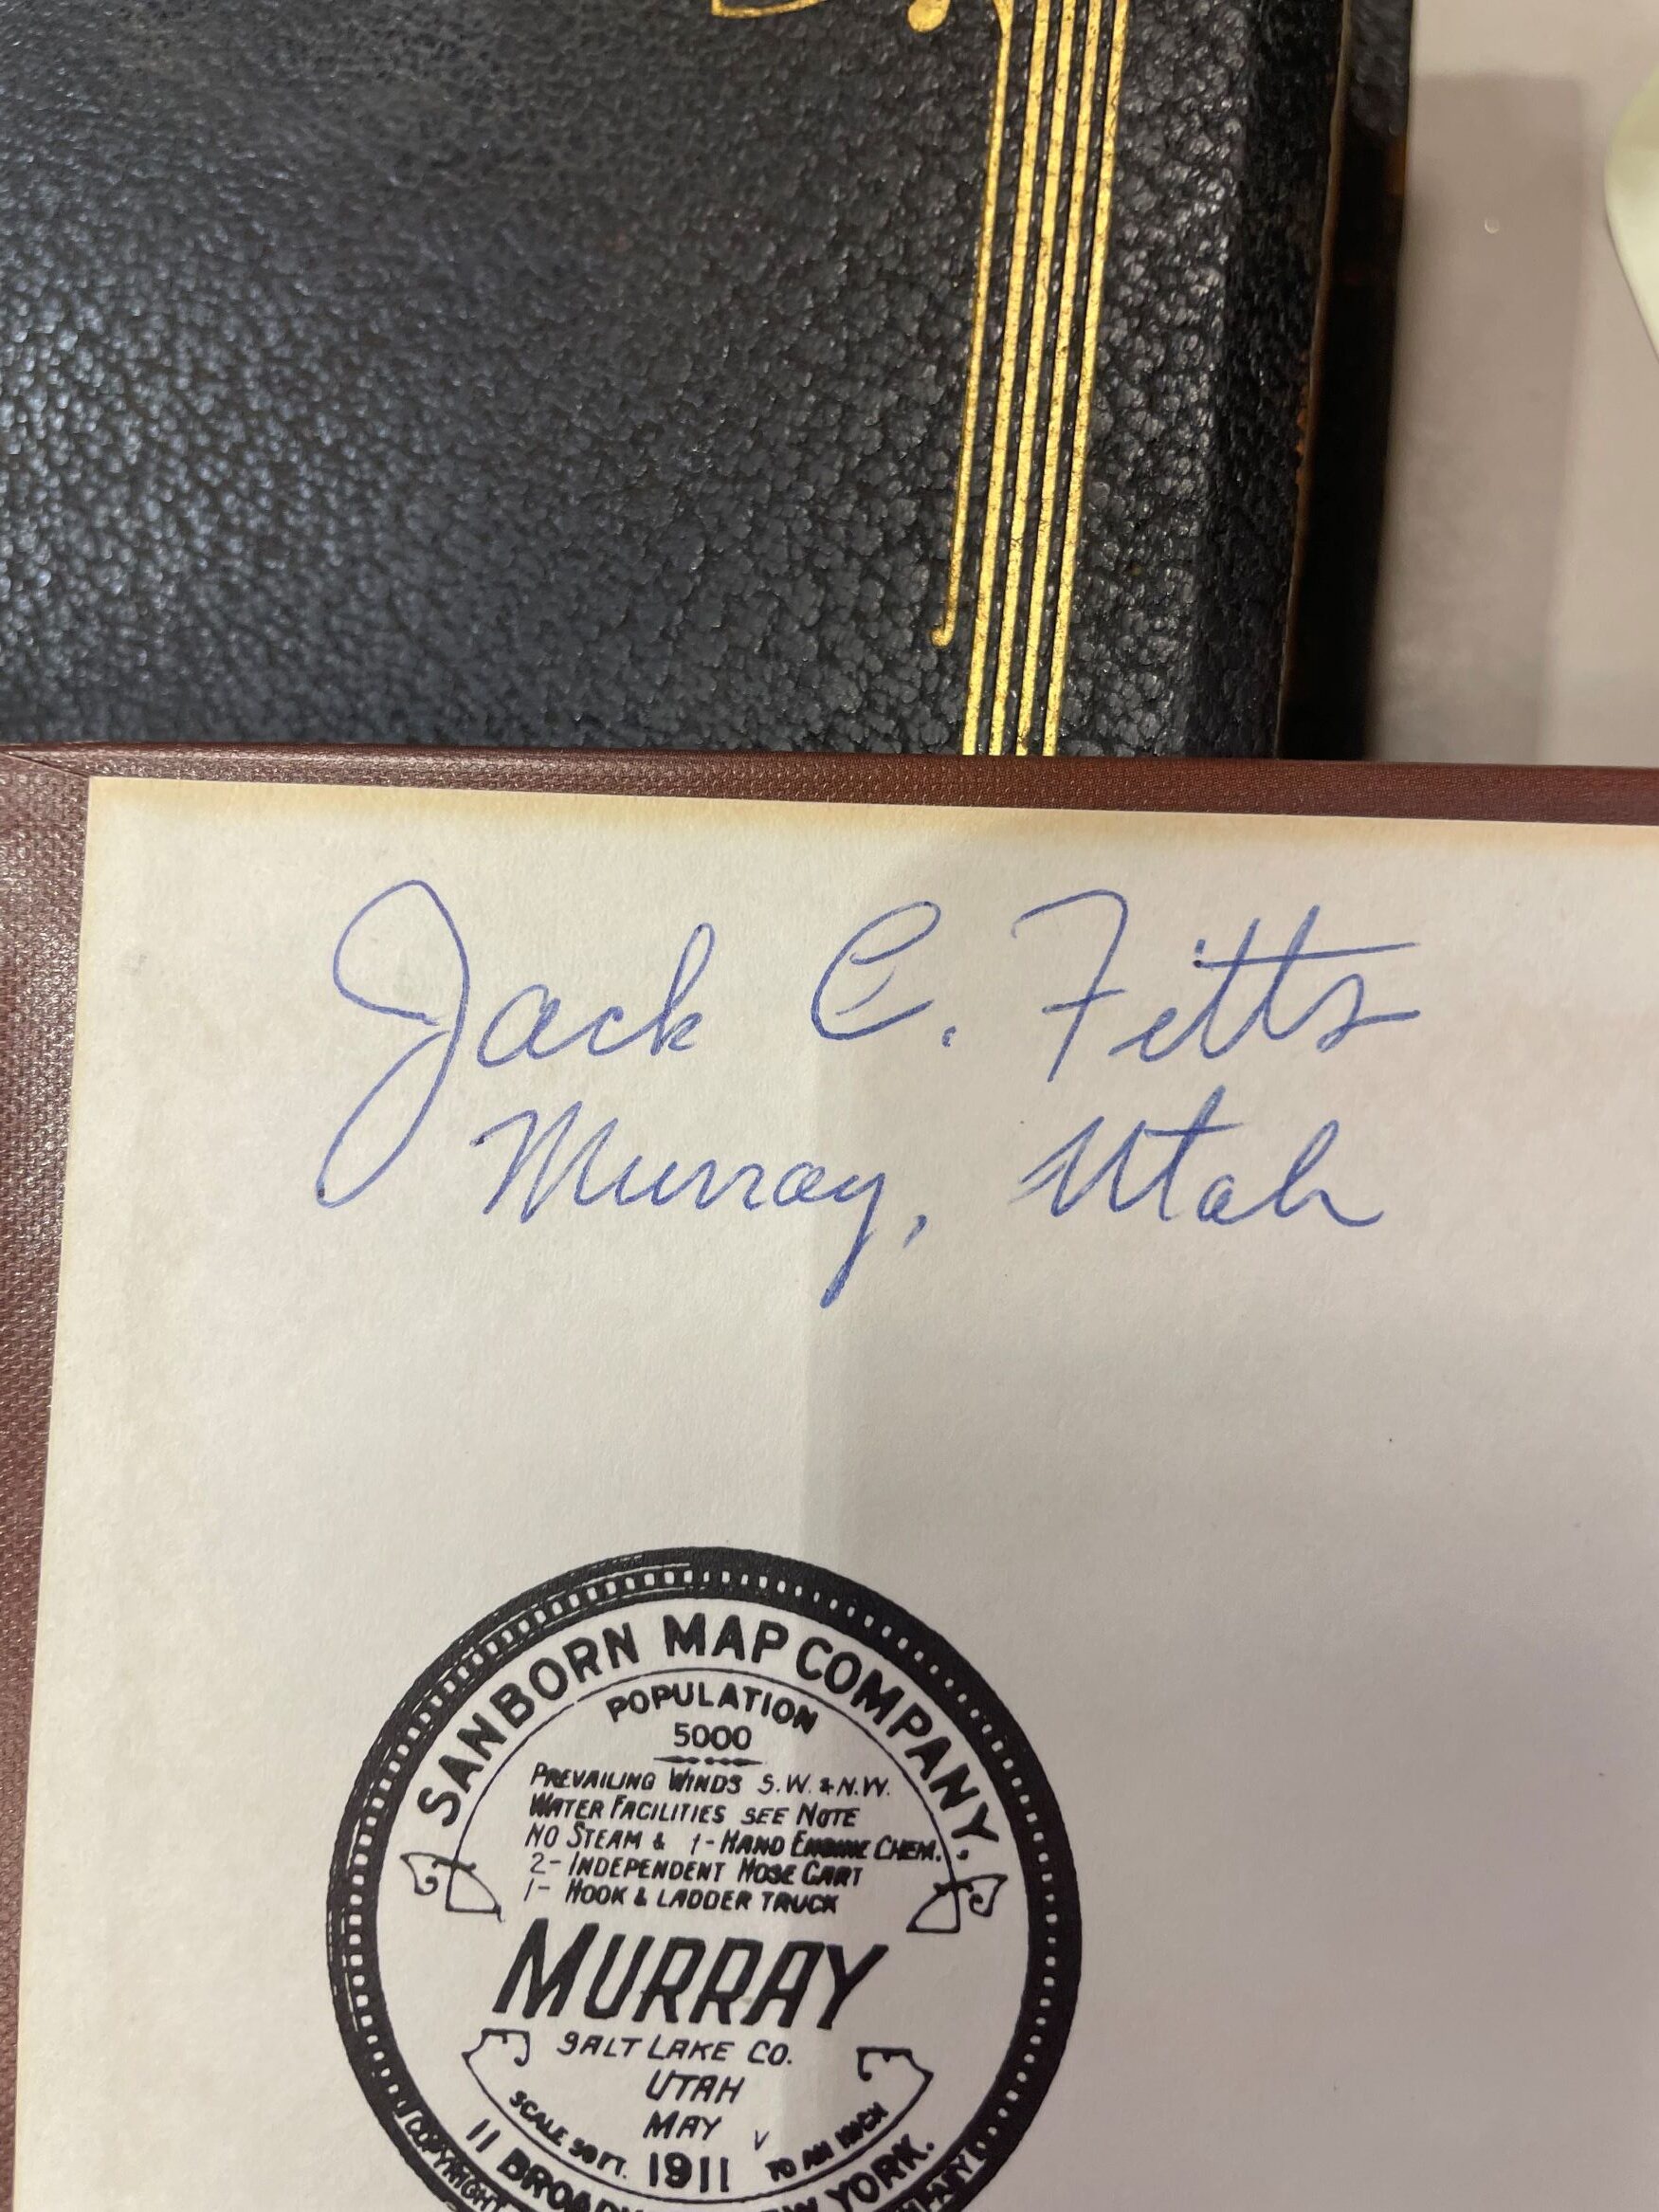 Jack C. Fitts
Murray, Utah
SANBORN MAP COMPANY.
POPULATION
5000
PREVAILING WINDS S.W. & N.W.
WATER FACILITIES SEE NOTE
NO STEAM & 1-HAND ENGINE CHEM.
2-INDEPENDENT HOSE CART
1- HOOK & LADDER TRUCK
MURRAY
SALT LAKE CO.
UTAH
MAY
1911
SCALE 50 FT. TO AN INCH
11 YORK.
COPYRIGHT